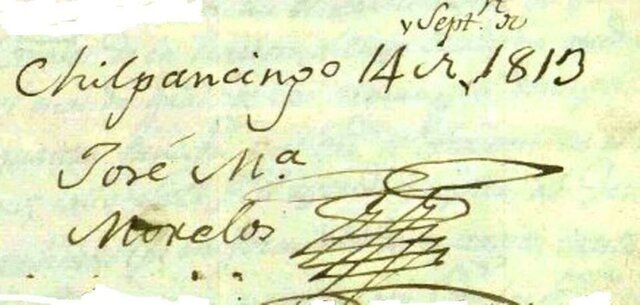 Septre
Chilpancingo 14 de 1813
José Ma.
Morelos